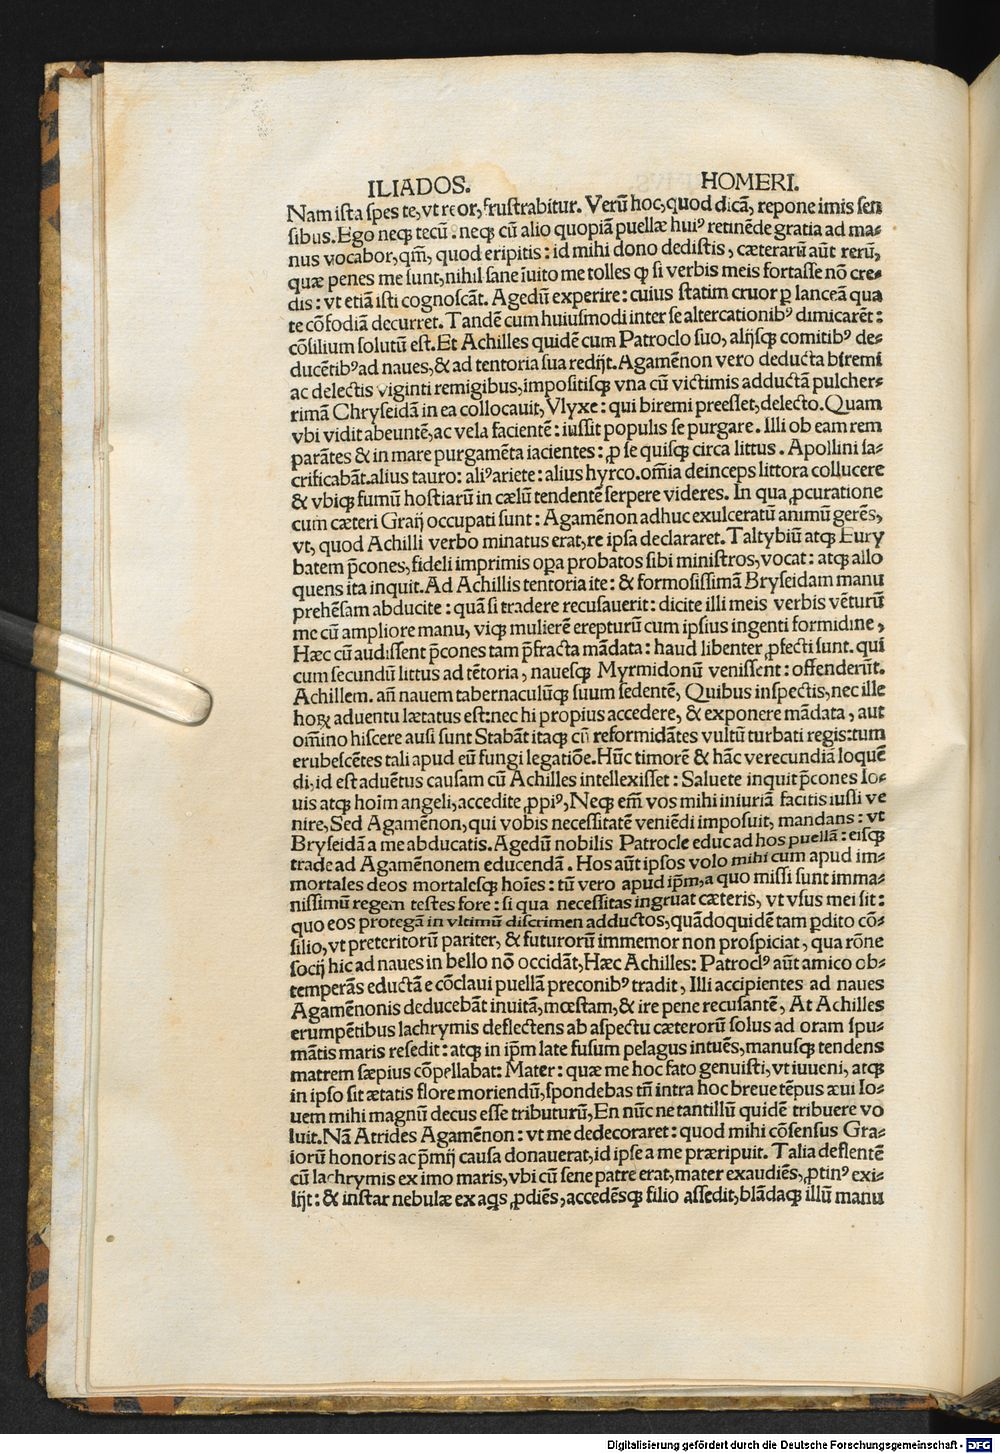 ILIADOS. HOMERI.
Nam iſta ſpes te, vt reor, fruſtrabitur. Verū hoc, quod dicā, repone imis ſen
ſibus. Ego neqꝫ tecū: neqꝫ cū alio quopiā puellæ huiꝰ retinēde gratia ad ma⸗
nus vocabor, qm̄, quod eripitis: id mihi dono dediſtis, cæterarū aūt rerū,
quæ penes me ſunt, nihil ſane īuito me tolles ꝙ ſi verbis meis fortaſſe nō cre⸗
dis: vt etiā iſti cognoſcāt. Agedū experire: cuius ſtatim cruor ꝑ lanceā qua
te cōfodiā decurret. Tandē cum huiuſmodi inter ſe altercationibꝰ dimicarēt:
cōſilium ſolutū eſt. Et Achilles quidē cum Patroclo ſuo, alijſqꝫ comitibꝰ de⸗
ducētibꝰ ad naues, & ad tentoria ſua redijt. Agamēnon vero deducta biremi
ac delectis viginti remigibus, impoſitiſqꝫ vna cū victimis adductā pulcher⸗
rimā Chryſeidā in ea collocauit, Vlyxe: qui biremi preeſſet, delecto. Quam
vbi vidit abeuntē, ac vela facientē: iuſſit populis ſe purgare. Illi ob eam rem
parātes & in mare purgamēta iacientes: ꝓ ſe quiſqꝫ circa littus. Apollini ſa⸗
crificabāt. alius tauro: aliꝰ ariete: alius hyrco. oīmia deinceps littora collucere
& vbiqꝫ fumū hoſtiarū in cælū tendentē ſerpere videres. In qua ꝓcuratione
cum cæteri Graij occupati ſunt: Agamēnon adhuc exulceratū animū gerēs,
vt, quod Achilli verbo minatus erat, re ipſa declararet. Taltybiū atqꝫ Eury
batem p̄cones, fideli imprimis oꝑa probatos ſibi miniſtros, vocat: atqꝫ allo
quens ita inquit. Ad Achillis tentoria ite: & formoſiſſimā Bryſeidam manu
prehēſam abducite: quā ſi tradere recuſauerit: dicite illi meis verbis vēturū
me cū ampliore manu, viqꝫ mulierē erepturū cum ipſius ingenti formidine,
Hæc cū audiſſent p̄cones tam p̄fracta mādata: haud libenter ꝓfecti ſunt. qui
cum ſecundū littus ad tētoria, naueſqꝫ Myrmidonū veniſſent: offenderūt.
Achillem. añ nauem tabernaculūqꝫ ſuum ſedentē, Quibus inſpectis, nec ille
hoꝝ aduentu lætatus eſt: nec hi propius accedere, & exponere mādata, aut
omīno hiſcere auſi ſunt Stabāt itaqꝫ cū reformidātes vultū turbati regis: tum
erubeſcētes tali apud eū fungi legatiōe. Hūc timorē & hāc verecundiā loquē
di, id eſt aduētus cauſam cū Achilles intellexiſſet: Saluete inquit p̄cones Io⸗
uis atqꝫ hoīm angeli, accedite ꝓpiꝰ, Neqꝫ em̄ vos mihi iniuriā facitis iuſſi ve
nire, Sed Agamēnon, qui vobis neceſſitatē veniēdi impoſuit, mandans: vt
Bryſeidā a me abducatis. Agedū nobilis Patrocle educ ad hos puellā: eiſqꝫ
trade ad Agamēnonem educendā. Hos aūt ipſos volo mihi cum apud im⸗
mortales deos mortaleſqꝫ hoīes: tū vero apud ip̄m, a quo miſſi ſunt imma⸗
niſſimū regem teſtes fore: ſi qua neceſſitas ingruat cæteris, vt vſus mei ſit:
quo eos protegā in vltimū diſcrimen adductos, quādoquidē tam ꝑdito cō⸗
ſilio, vt preteritorū pariter, & futurorū immemor non proſpiciat, qua rōne
ſocij hic ad naues in bello nō occidāt, Hæc Achilles: Patroclꝰ aūt amico ob⸗
temperās eductā e cōclaui puellā preconibꝰ tradit, Illi accipientes ad naues
Agamēnonis deducebāt inuitā, mœſtam, & ire pene recuſantē, At Achilles
erumpētibus lachrymis deflectens ab aſpectu cæterorū ſolus ad oram ſpu⸗
mātis maris reſedit: atqꝫ in ip̄m late fuſum pelagus intuēs, manuſqꝫ tendens
matrem ſæpius cōpellabat: Mater: quæ me hoc fato genuiſti, vt iuueni, atqꝫ
in ipſo ſit ætatis flore moriendū, ſpondebas tñ intra hoc breue tēpus æui Io⸗
uem mihi magnū decus eſſe tributurū, En nūc ne tantillū quidē tribuere vo
luit. Nā Atrides Agamēnon: vt me dedecoraret: quod mihi cōſenſus Gra⸗
iorū honoris ac p̄mij cauſa donauerat, id ipſe a me præripuit. Talia deflentē
cū lachrymis ex imo maris, vbi cū ſene patre erat, mater exaudiēs, ꝓtinꝰ exi⸗
lijt: & inſtar nebulæ ex aq̄s ꝓdiēs, accedēſqꝫ filio aſſedit, blādaqꝫ illū manu
Digitalisierung gefördert durch die Deutsche Forschungsgemeinschaft - DFG